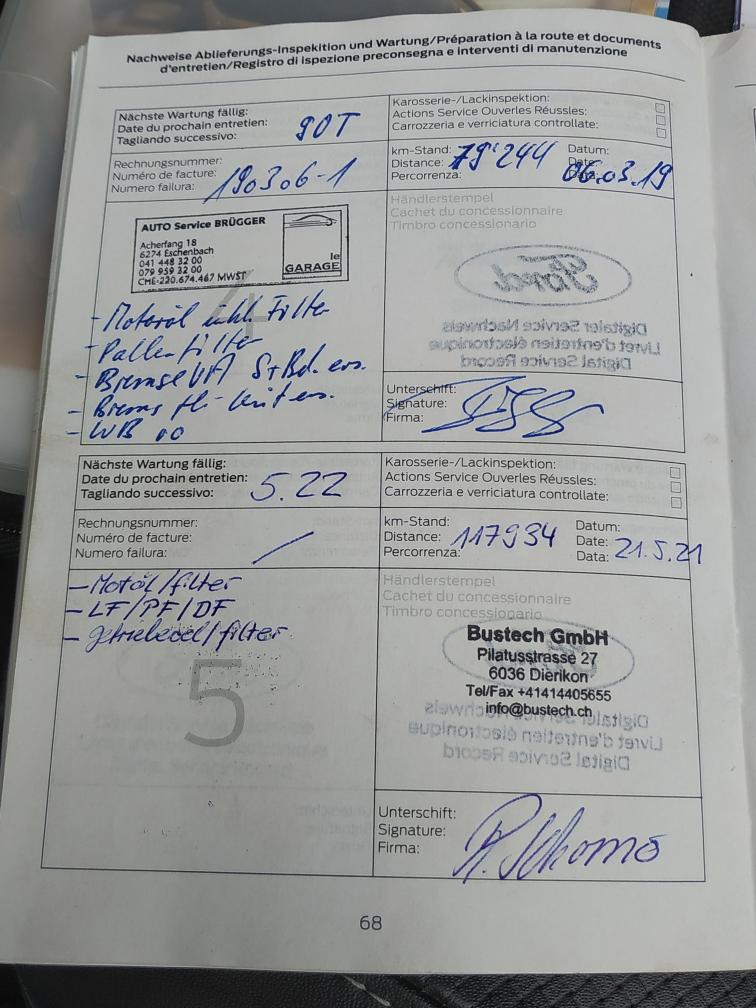 Nachweise Ablieferungs-Inspekition und Wartung/Préparation à la route et documents
d'entretien/Registro di ispezione preconsegna e interventi di manutenzione
Nächste Wartung fällig:
Date du prochain entretien:
Tagliando successivo:
90T
Karosserie-/Lackinspektion:
Actions Service Ouverles Réussles:
Carrozzeria e verriciatura controllate:
Rechnungsnummer:
Numéro de facture:
Numero failura:
190306-1
km-Stand:
Distance:
Percorrenza:
79'244
Datum:
Date:
Data:
.03.19
AUTO Service BRÜGGER
Acherfang 18
6274 Eschenbach
041 448 32 00
079 959 32 00
CHE-220.674.467 MWST
le
GARAGE
4
- Motoröl inkl Filter
- Pollenfilter
- Bremse VA S+Bel. ers.
- Brems ers.
- WB oo
Händlerstempel
Cachet du concessionnaire
Timbro concessionario
Ford
Digitaler Service Nachweis
Livret d'entretien électronique
Digital Service Record
Unterschift:
Signature:
Firma:
Nächste Wartung fällig:
Date du prochain entretien:
Tagliando successivo:
5.22
Karosserie-/Lackinspektion:
Actions Service Ouverles Réussles:
Carrozzeria e verriciatura controllate:
Rechnungsnummer:
Numéro de facture:
Numero failura:
/
km-Stand:
Distance:
Percorrenza:
117934
Datum:
Date:
Data:
21.5.21
- Motöl/filter
- LF/PF/DF
- getriebeoel/filter
5
Händlerstempel
Cachet du concessionnaire
Timbro concessionario
Bustech GmbH
Pilatusstrasse 27
6036 Dierikon
Tel/Fax +41414405655
info@bustech.ch
Digitaler Service Nachweis
Livret d'entretien électronique
Digital Service Record
Unterschift:
Signature:
Firma:
68